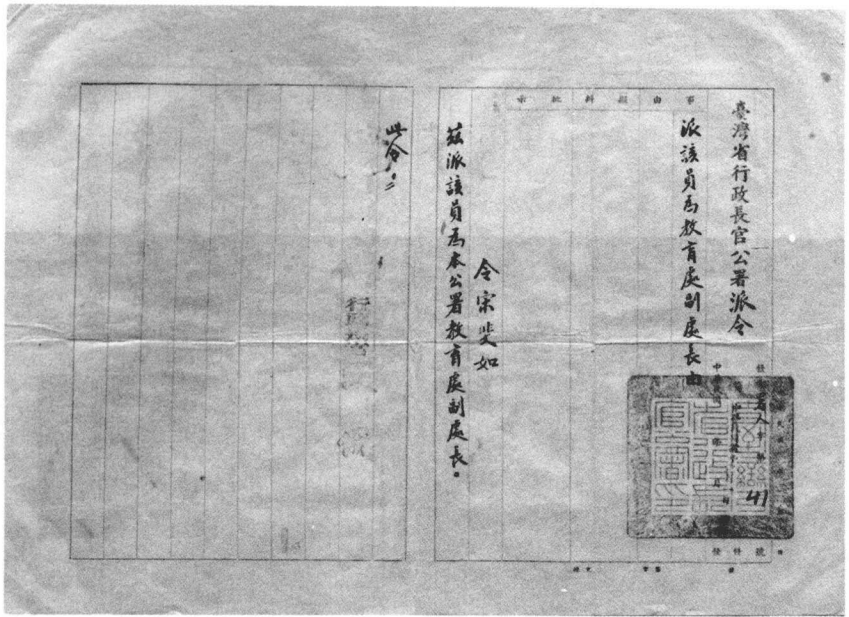 臺灣省行政長官公署派令
派該員為教育處副處長由
事由擬辦批示
令宋斐如
茲派該員為本公署教育處副處長。
此令。
41